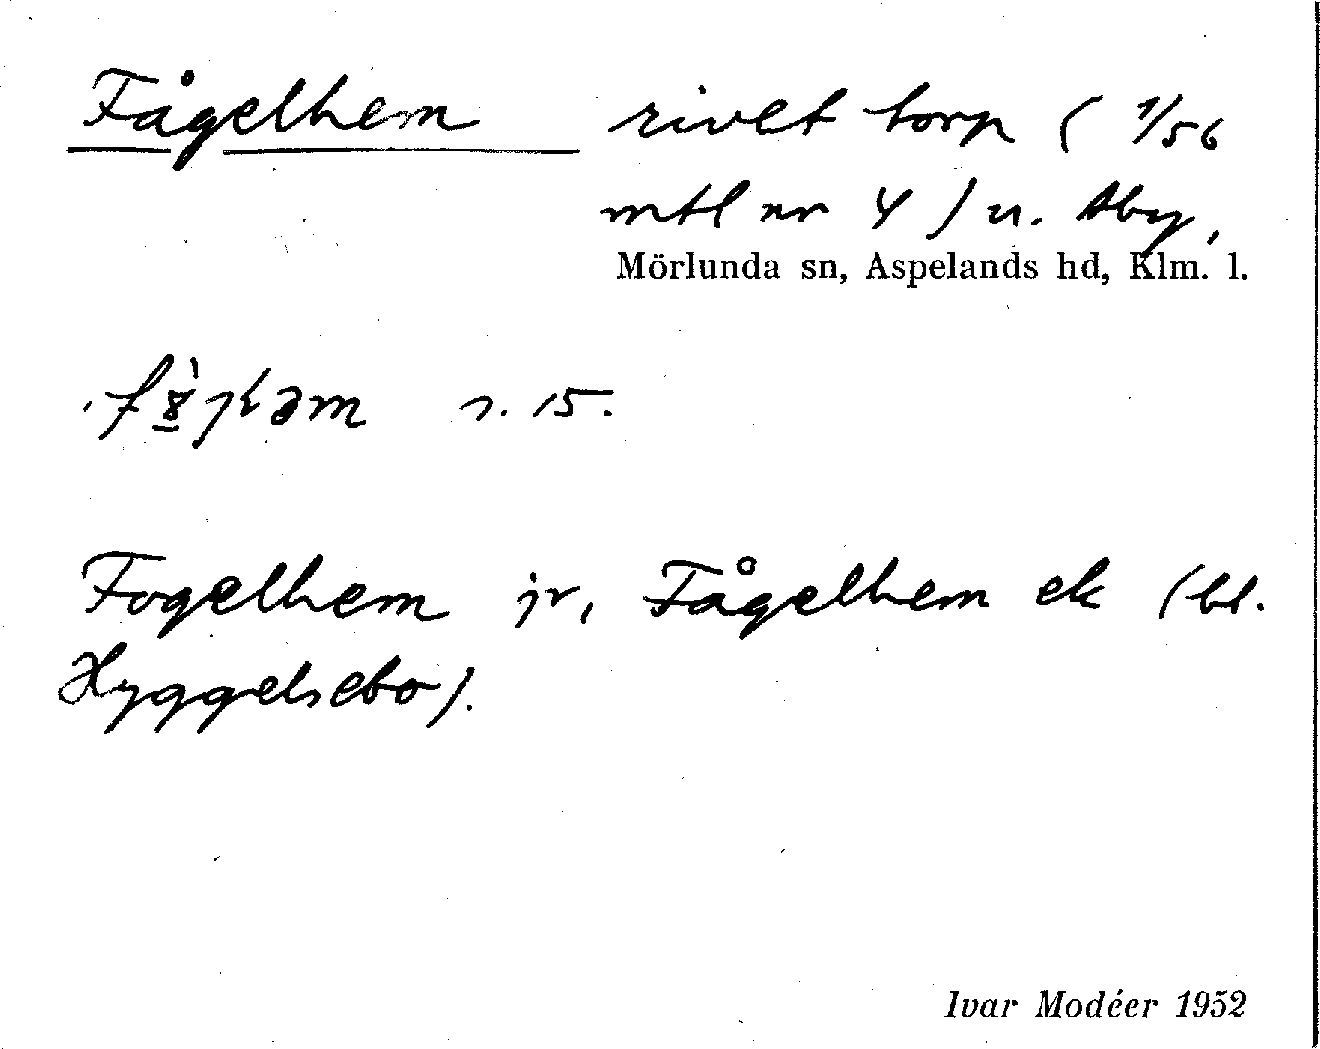 Fågelhem rivet torp ( 1/56
mtl nr 4 ) u. Åby,
Mörlunda sn, Aspelands hd, Klm. l.
s. 15.
Fogelhem jr, Fågelhem ek (bl.
Hyggelsebo).
Ivar Modéer 1952